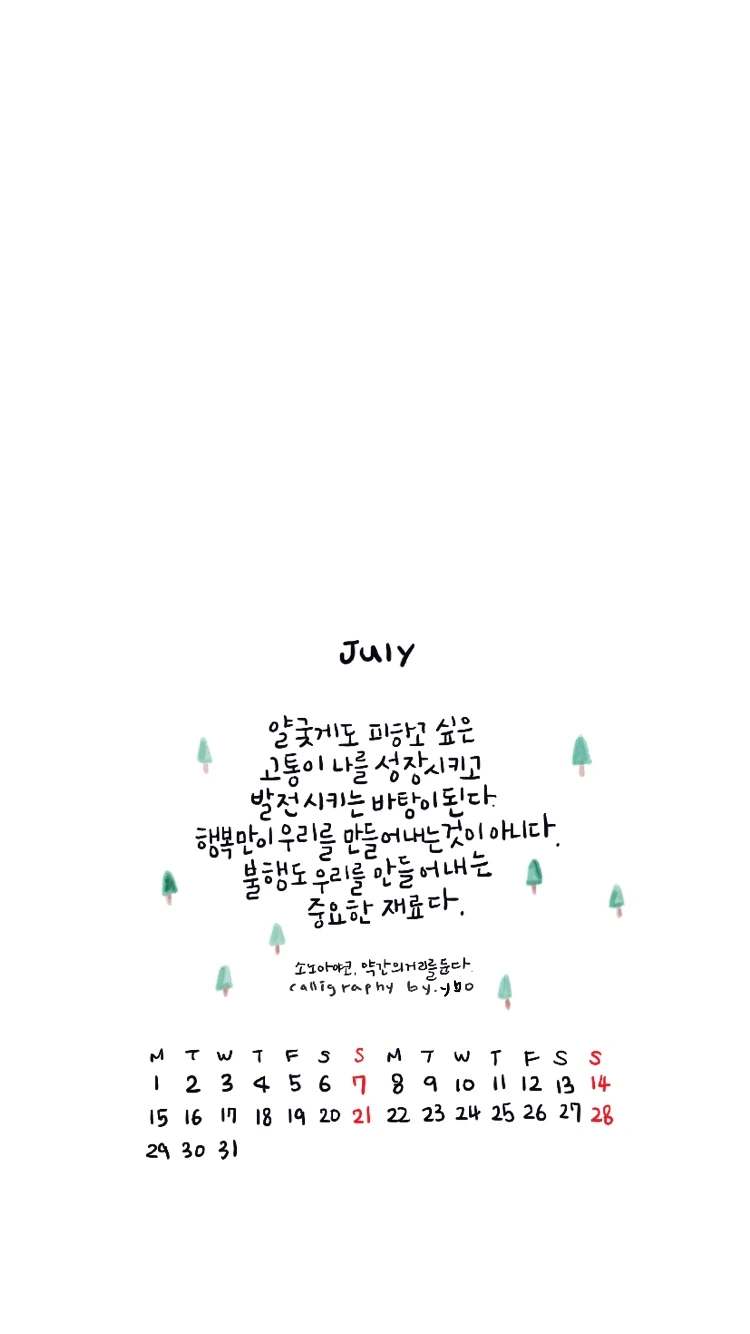 July
얄궂게도 피하고 싶은
고통이 나를 성장시키고
발전시키는 바탕이 된다.
행복만이 우리를 만들어내는 것이 아니다.
불행도 우리를 만들어 내는
중요한 재료다.
소노아야코, 약간의거리를둔다.
calligraphy by.ybo
M T W T F S S M T W T F S S
1 2 3 4 5 6 7 8 9 10 11 12 13 14
15 16 17 18 19 20 21 22 23 24 25 26 27 28
29 30 31